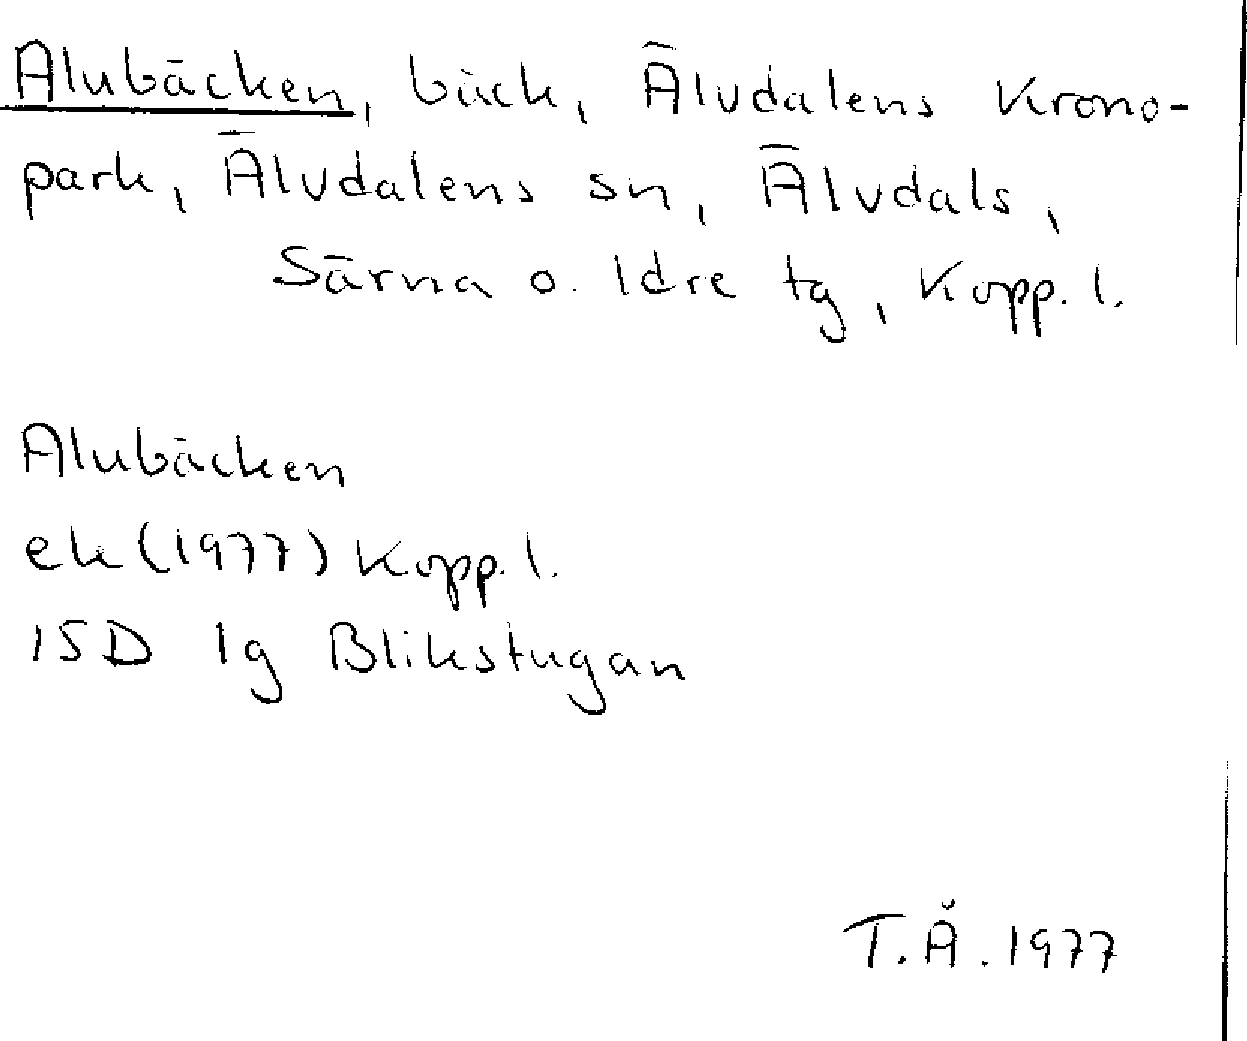 Alubäcken, bäck, Älvdalens Krono-
park, Älvdalens sn, Älvdals,
Särna o. Idre tg, Kopp. l.
Alubäcken
ek (1977) Kopp. l.
15D 1g Blikstugan
T.Å. 1977